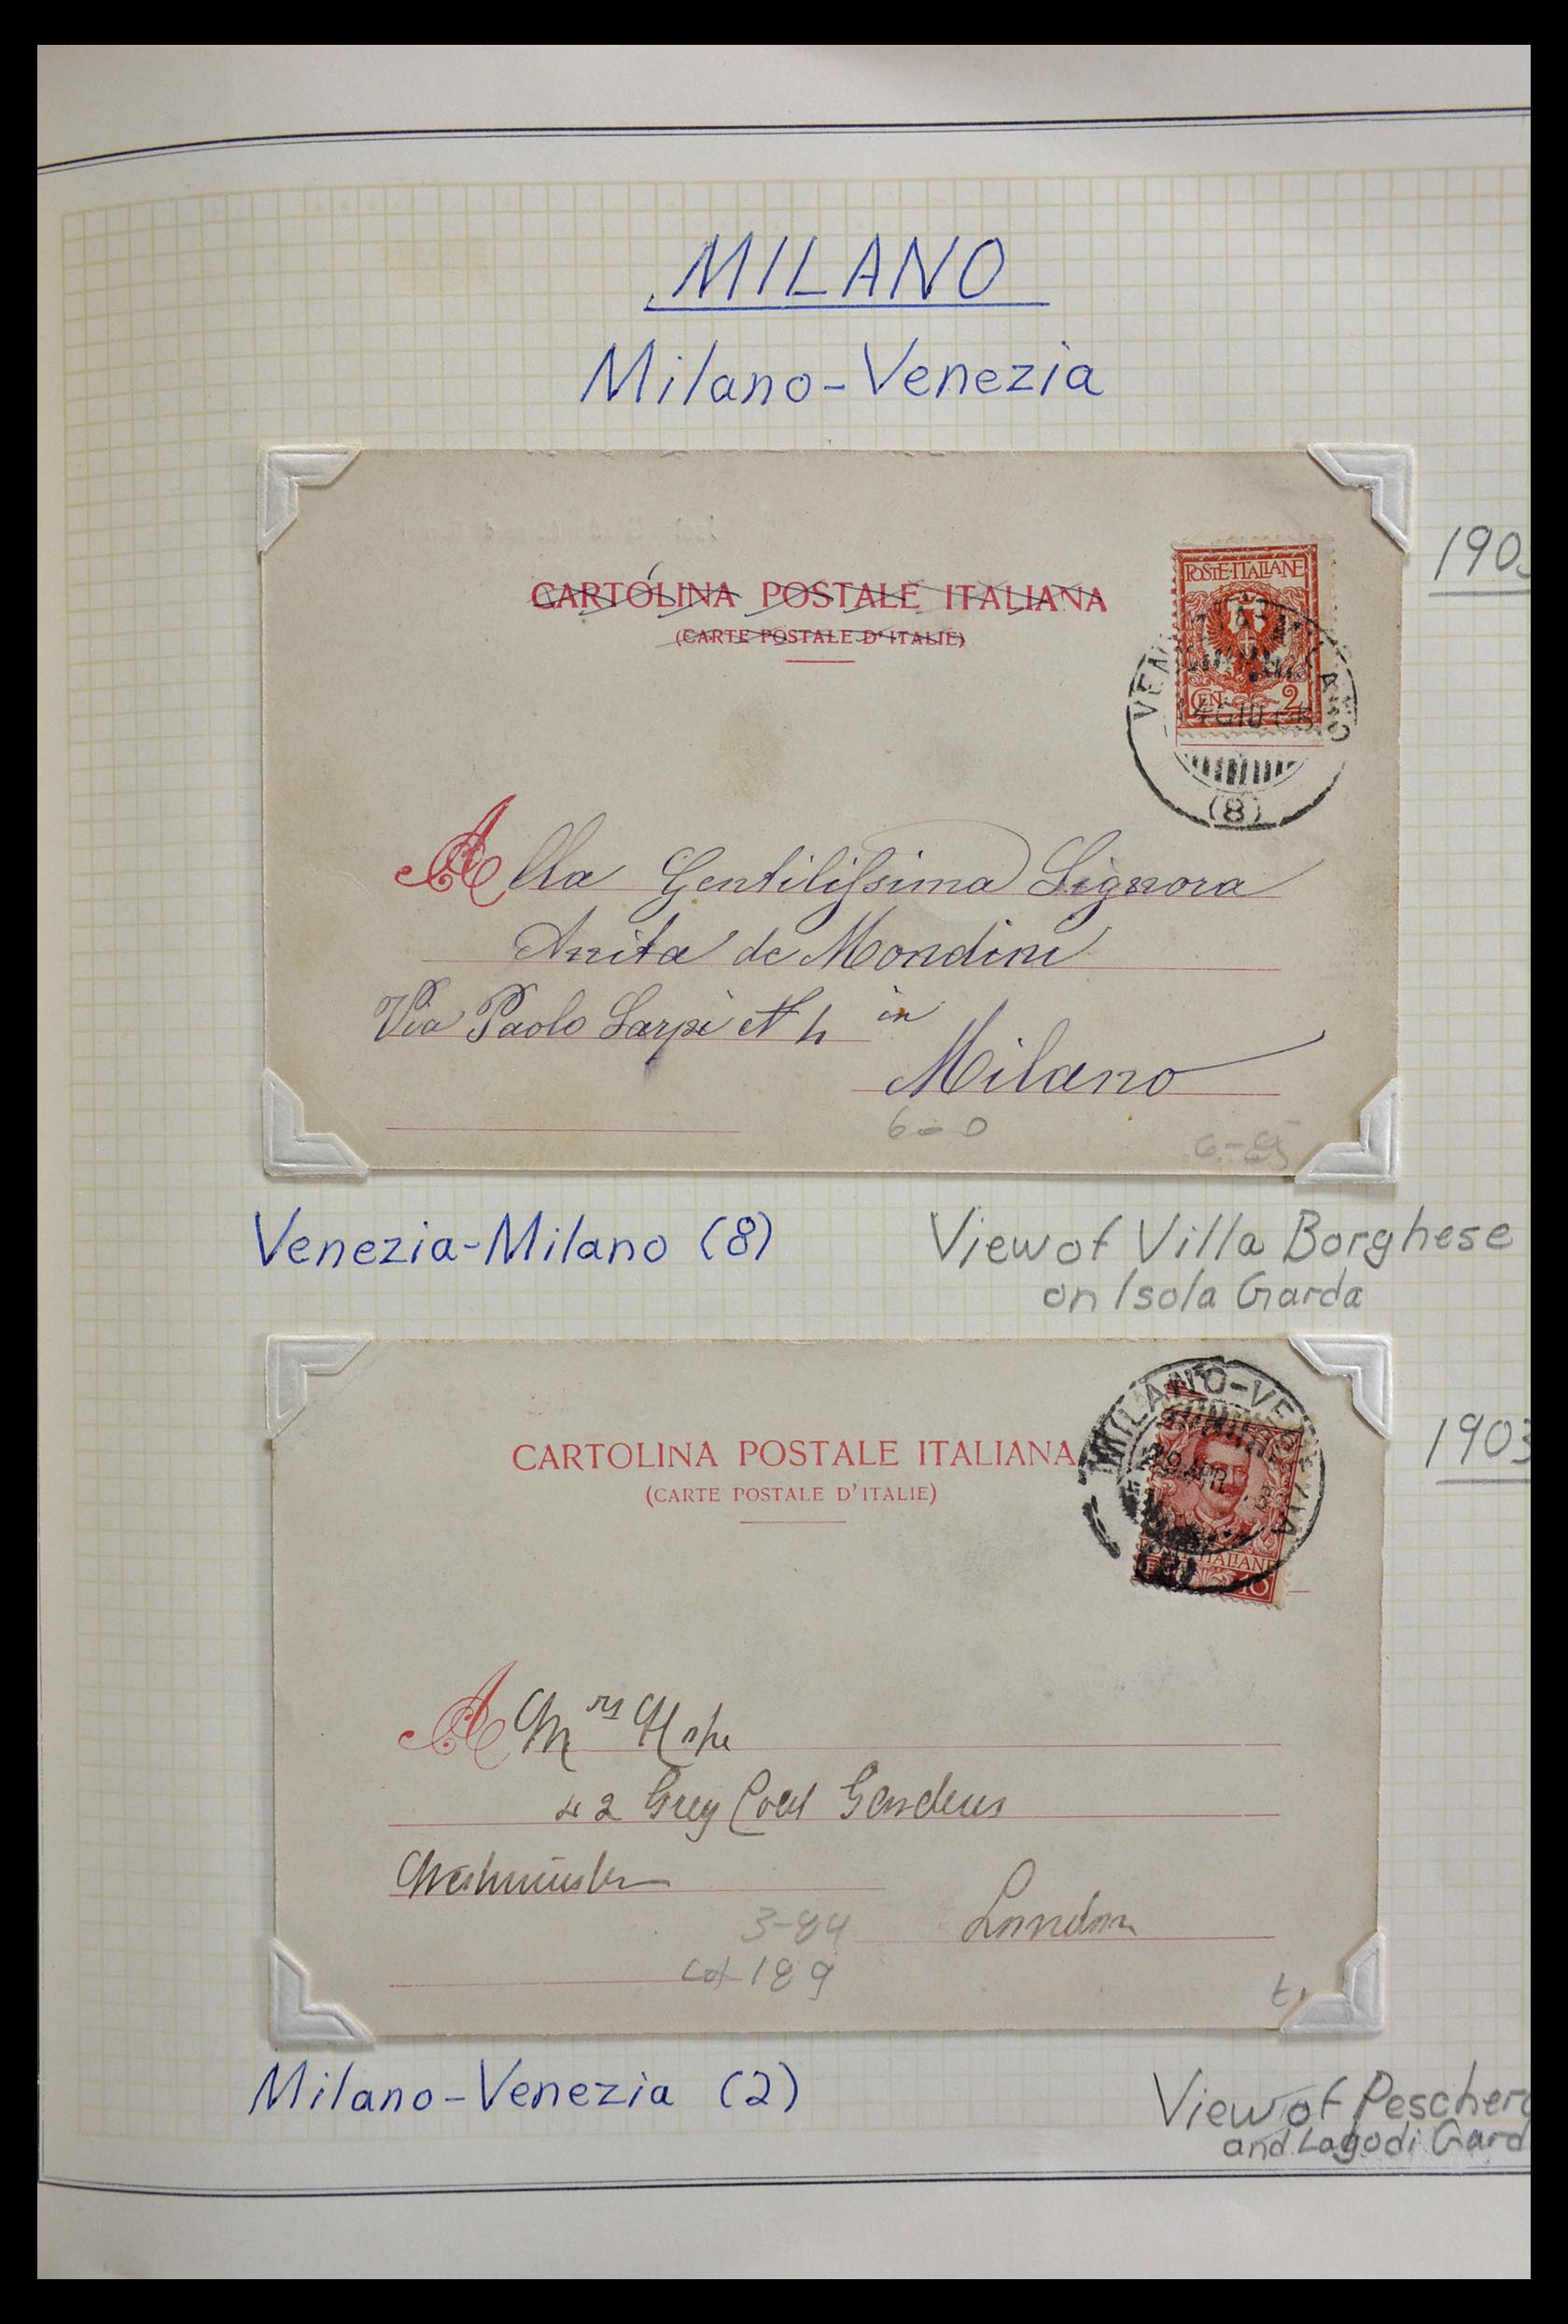 MILANO
Milano-Venezia
190
CARTOLINA POSTALE ITALIANA
(CARTE POSTALE D'ITALIE)
POSTE·ITALIANE
CEN. 2
14 GIU
(8)
Alla Gentilissima Signora
Anita de Mondini
Via Paolo Sarpi N 4 in
Milano
6-85
Venezia-Milano (8)
View of Villa Borghese
on Isola Garda
1903
MILANO-VENEZIA
29 APR
CARTOLINA POSTALE ITALIANA
(CARTE POSTALE D'ITALIE)
A Mrs Hope
42 Grey Coat Gardens
Westminster
London
3-84
cat 189
Milano-Venezia (2)
View of Pescher
and Lago di Gard